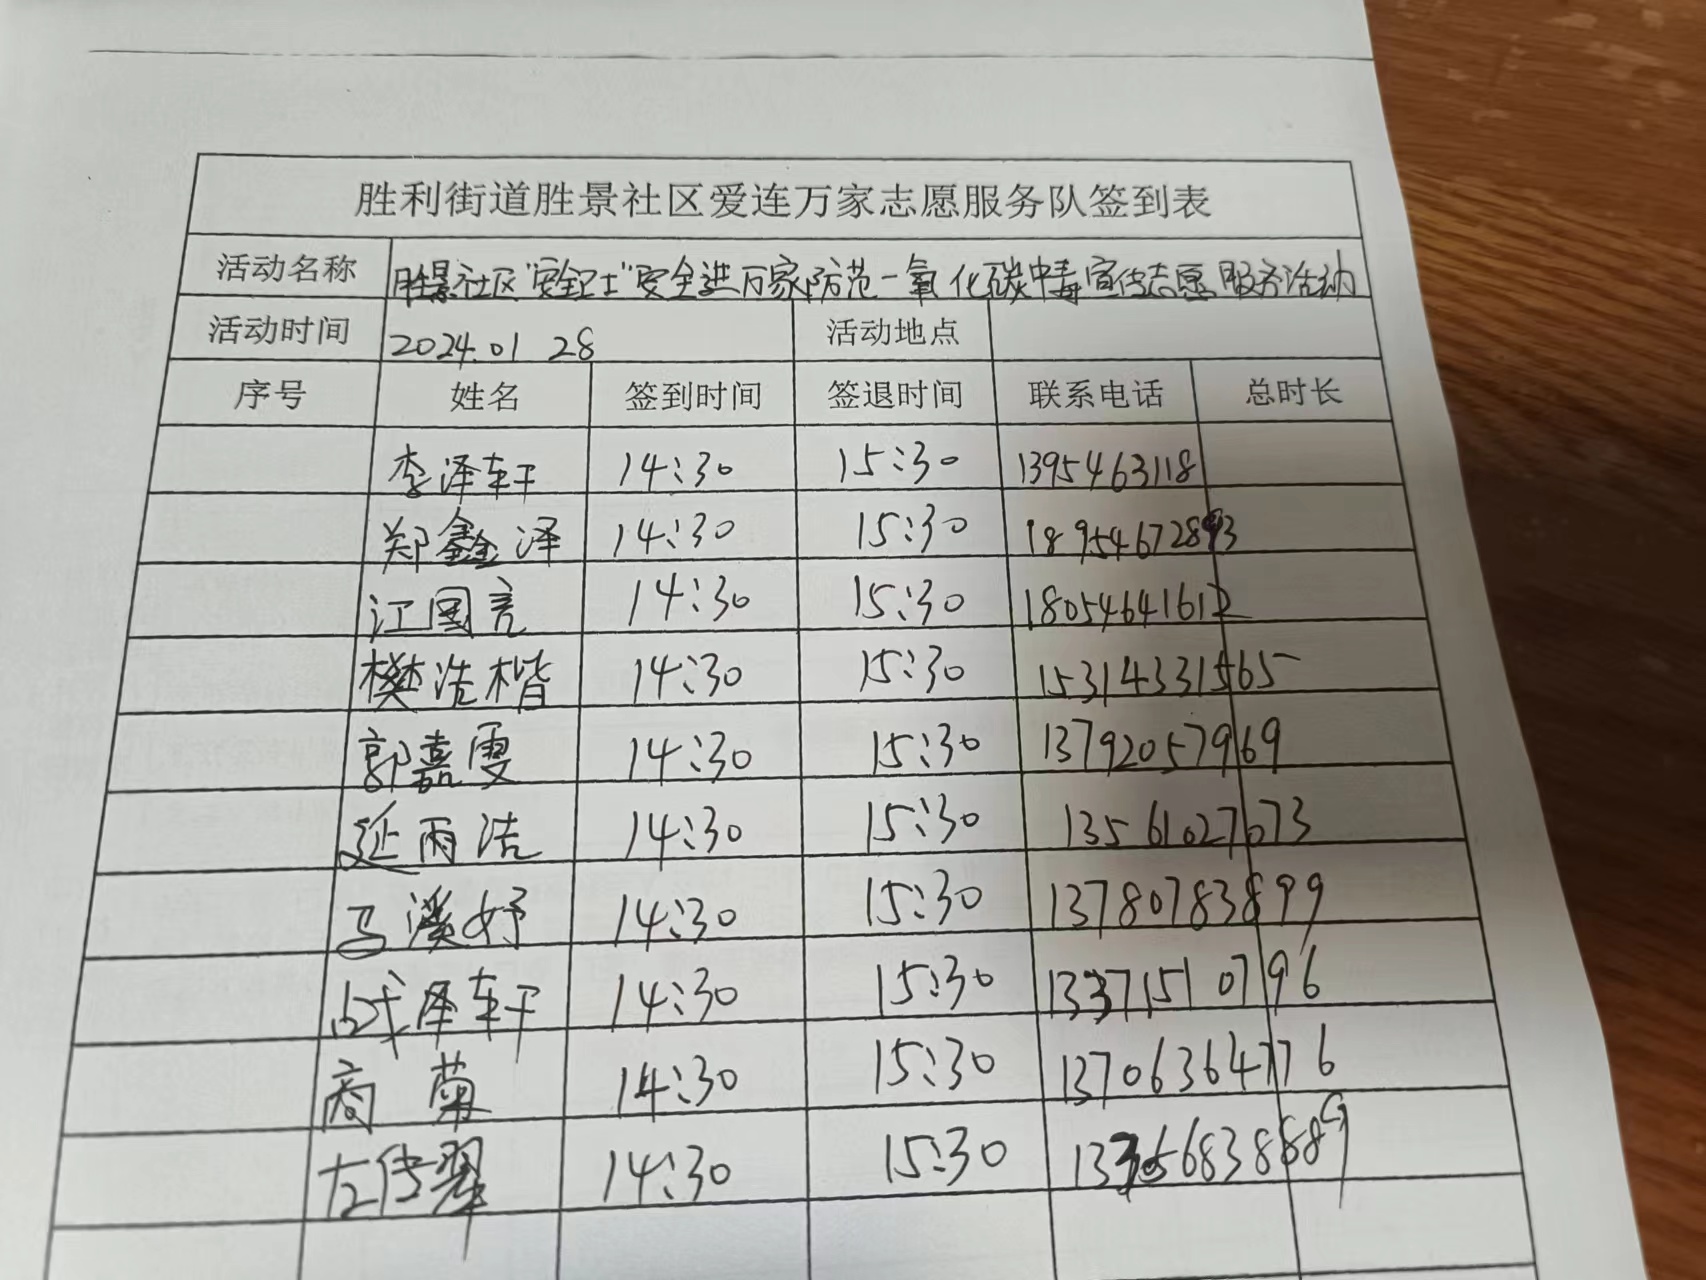 胜利街道胜景社区爱连万家志愿服务队签到表
活动名称 胜景社区“安全卫士”安全进万家防范一氧化碳中毒宣传志愿服务活动
活动时间 2024.01 28 活动地点
序号 姓名 签到时间 签退时间 联系电话 总时长
李泽轩 14:30 15:30 1395463118
郑鑫泽 14:30 15:30 18954672893
江国亮 14:30 15:30 18054641612
樊浩楷 14:30 15:30 15314331565
郭嘉雯 14:30 15:30 13792057969
延雨洁 14:30 15:30 13561027073
马溪妤 14:30 15:30 13780783899
战泽轩 14:30 15:30 13371510796
商菊 14:30 15:30 13706364776
左传翠 14:30 15:30